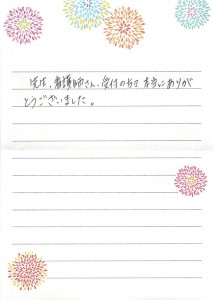 先生、看護師さん、受付の方 本当にありが
とうございました。